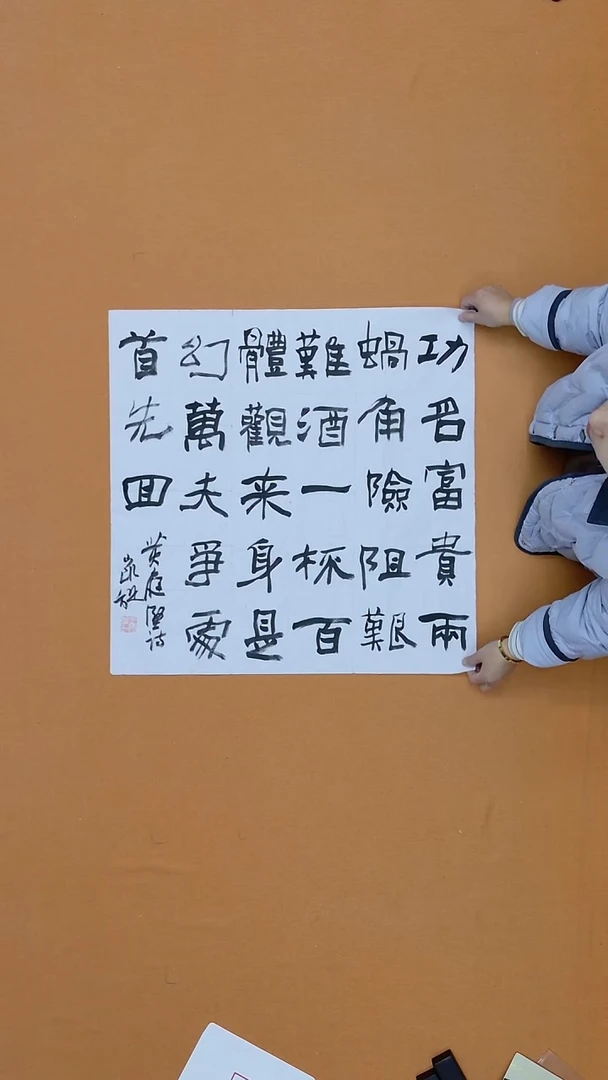 功名富貴兩
蝸角險阻艱
難酒一杯百
體觀来身是
幻萬夫爭處
首先回
黄庭堅诗